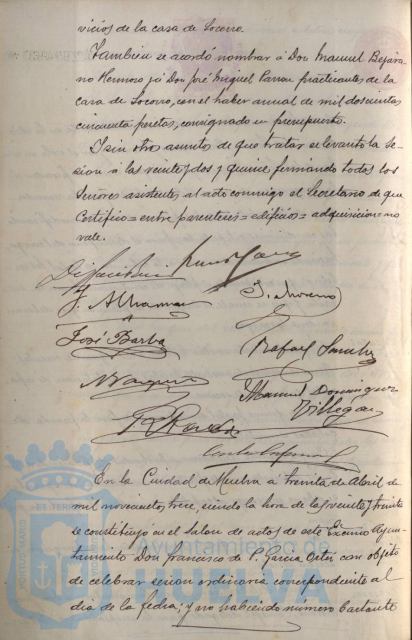 vicios de la casa de Socorro.
Tambien se acordó nombrar á Don Manuel Bejara-
no Hermoso y á Don José Miguel Parrau practicantes de la
casa de Socorro, con el haber anual de mil doscientas
cincuenta pesetas, consignado en presupuesto.
Y sin otros asuntos de que tratar se levantó la se-
sion á las veinte y dos y quince, firmando todos los
Señores asistentes al acto conmigo el Secretario de que
Certifico = entre parentesis = edificios = adquisicion = no
vale.
José Barba
Rafael Sanchez
N Vazquez
Manuel Dominguez
Villegas
En la Ciudad de Huelva á treinta de Abril de
mil novecientos trece, siendo la hora de las veinte y treinta
se constituyó en el Salon de actos de este Excmo Ayun-
tamiento Don Francisco de P. Garcia Ortiz con objeto
de celebrar sesion ordinaria correspondiente al
dia de la fecha; y no habiendo número bastante
Ayuntamiento de
HUELVA